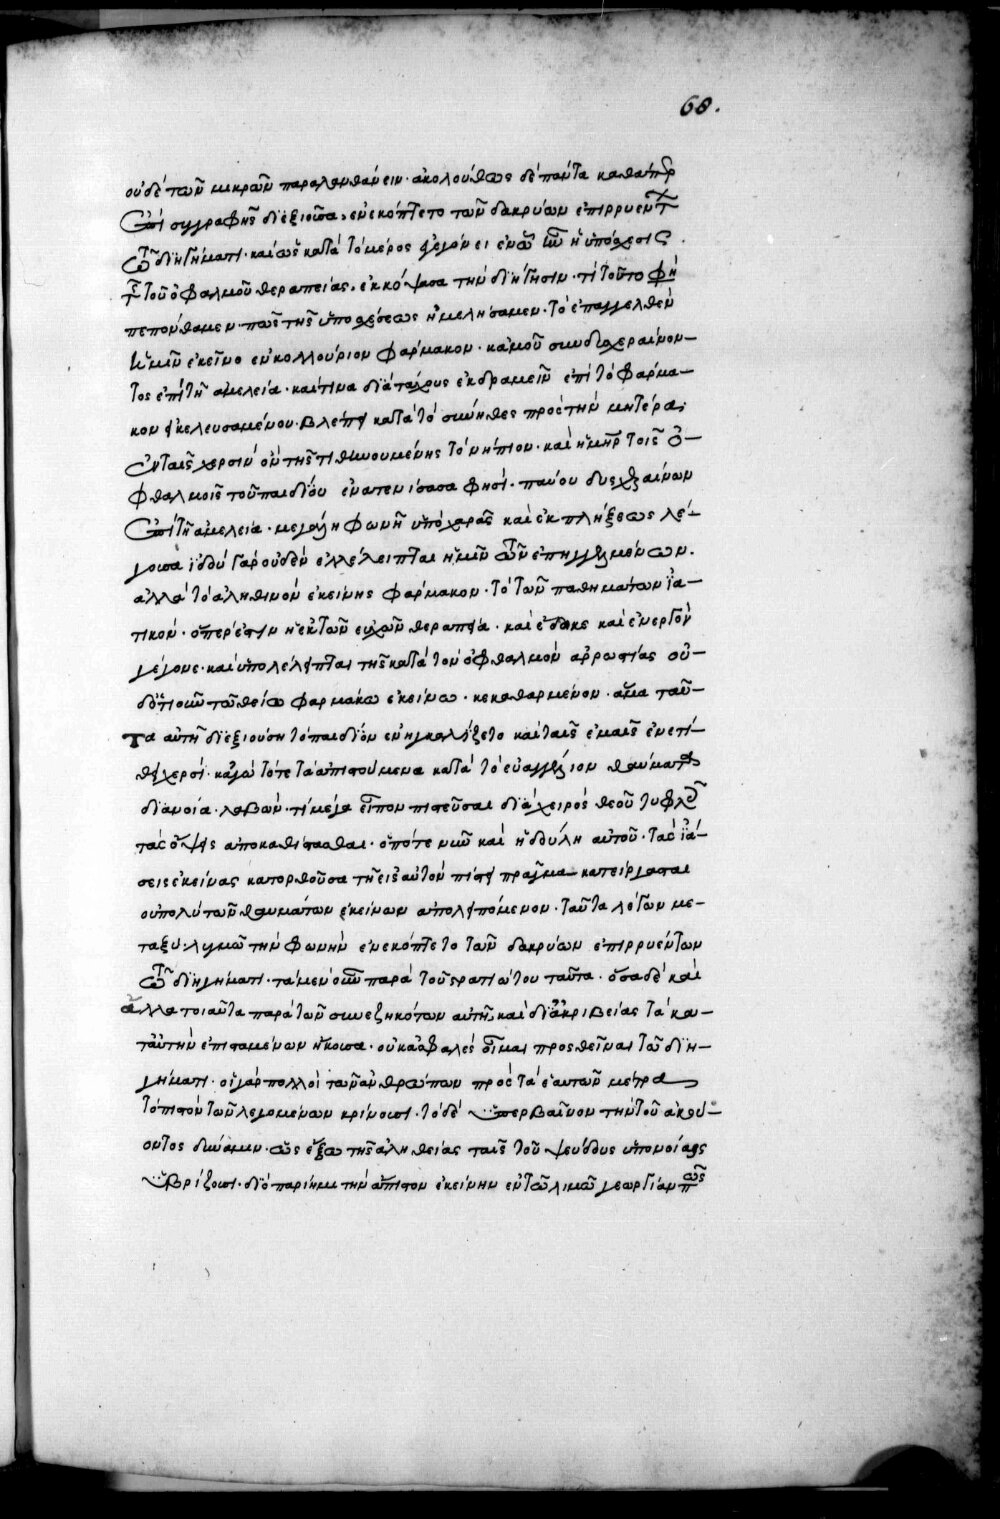 68.
οὐδὲ τῶν μικρῶν παραλανθάνειν· ἀκολούθως δὲ πάντα καθάπερ
ἐπὶ συγγραφῆς διεξιοῦσα, ἐνεκόπτετο τῶν δακρύων ἐπιρρυέντων
τῶ διηγήματι· καὶ ὡς κατὰ τὸ μέρος ἐγεγόνει ἐν ὧ ἦν ἡ ὑπόσχεσις
τῆς τοῦ ὀφθαλμοῦ θεραπείας. ἐκκόψασα τὴν διήγησιν· τί τοῦτο φησὶ
πεπόνθαμεν· πῶς τῆς ὑποσχέσεως ἠμελήσαμεν· τὸ ἐπαγγελθὲν
ἡμῖν ἐκεῖνο ἐν κολλούριον φάρμακον· κἀμοῦ συνδυσχεραίνον-
τος ἐπὶ τῆ ἀμελεία· καὶ τινα διὰ τάχους ἐκδραμεῖν ἐπὶ τὸ φάρμα-
κον ἐγκελευσαμένου· βλέπει κατὰ τὸ σύνηθες πρὸς τὴν μητέρα,
ἐν ταῖς χερσὶν ὂν τῆς τιθηνουμένης τὸ νήπιον· καὶ ἡ μήτηρ τοῖς ὀ-
φθαλμοῖς τοῦ παιδίου ἐνατενίσασα φησί· παύου δυσχεραίνων
ἐπὶ τῆ ἀμελεία· μεγάλη φωνῆ ὑπὸ χαρᾶς καὶ ἐκπλήξεως λέ-
γουσα ἰδοὺ γὰρ οὐδὲν ἐλλέλειπται ἡμῖν τῶν ἐπηγγελμένων.
ἀλλὰ τὸ ἀληθινὸν ἐκείνης φάρμακον· τὸ τῶν παθημάτων ἰα-
τικόν· ὅπερ ἐστὶν ἡ ἐκ τῶν εὐχῶν θεραπεία· καὶ ἔδωκε καὶ ἐνεργὸν
γέγονε· καὶ ὑπολέλειπται τῆς κατὰ τὸν ὀφθαλμὸν ἀρρωστίας οὐ-
δοτιοῦν τῶ θείω φαρμάκω ἐκείνω· κεκαθαρμένον· ἅμα ταῦ-
τα αὐτὴ διεξιοῦση τὸ παιδίον ἐνηγκαλίζετο καὶ ταῖς ἐμαῖς ἐνετί-
θει χερσί· κἀγὼ τότε τὰ ἀπιστούμενα κατὰ τὸ εὐαγγέλιον θαύματα
διανοία· λαβών· τί μέγα εἶπον πιστεῦσαι διὰ χειρὸς θεοῦ τυφλοῖς
τὰς ὄψεις ἀποκαθίστασθαι· ὁπότε νῦν καὶ ἡ δούλη αὐτοῦ· τὰς ἰά-
σεις ἐκείνας κατορθοῦσα τῆ εἰς αὐτὸν πίστει πρᾶγμα κατείργασται
οὐ πολὺ τῶν θαυμάτων ἐκείνων ἀπολειπόμενον· ταῦτα λέγων με-
ταξὺ· λυγμῶ τὴν φωνὴν ἐνεκόπτετο τῶν δακρύων ἐπιρρυέντων
τῶ διηγήματι· τὰ μὲν οὖν παρὰ τοῦ στρατιώτου ταῦτα· ὅσα δὲ καὶ
ἄλλα τοιαῦτα παρὰ τῶν συνεζηκότων αὐτῆ· καὶ δι' ἀκριβείας τὰ κα-
τ' αὐτὴν ἐπισταμένων ἤκουσα· οὐκ ἀσφαλὲς οἶμαι προσθεῖναι τῶ διη-
γήματι· οἱ γὰρ πολλοὶ τῶν ἀνθρώπων πρὸς τὰ ἑαυτῶν μέτρα
τὸ πιστὸν τῶν λεγομένων κρίνουσι· τὸ δὲ ὑπερβαῖνον τὴν τοῦ ἀκού-
οντος δύναμιν· ὡς ἔξω τῆς ἀληθείας ταῖς τοῦ ψεύδους ὑπονοίαις
ὑβρίζουσι· διὸ παρίημι τὴν ἄπιστον ἐκείνην ἐν τῶ λιμῶ γεωργίαν πῶς